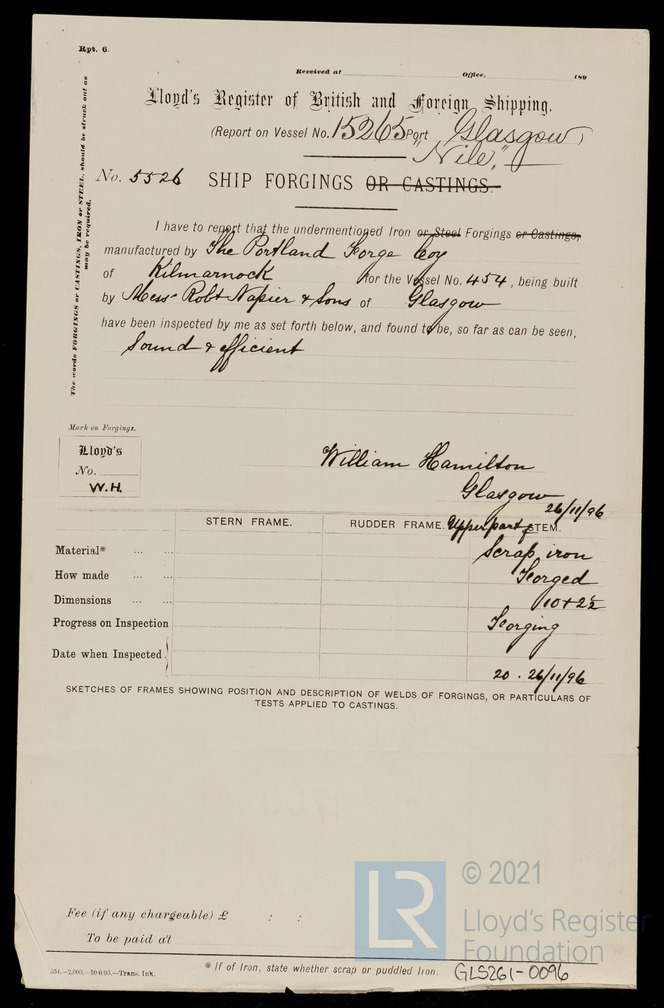 Rpt. 6.
Received at Office, 189
Lloyd's Register of British and Foreign Shipping.
(Report on Vessel No. 15265 Port Glasgow)
"Nile,"
No. 5526 SHIP FORGINGS OR CASTINGS.
I have to report that the undermentioned Iron or Steel Forgings or Castings,
manufactured by The Portland Forge Coy
of Kilmarnock for the Vessel No. 454, being built
by Messrs Robt Napier & Sons of Glasgow
have been inspected by me as set forth below, and found to be, so far as can be seen,
Sound & efficient
The words FORGINGS or CASTINGS, IRON or STEEL, should be struck out as
may be required.
Mark on Forgings.
Lloyd's
No.
W.H.
William Hamilton
Glasgow
26/11/96
STERN FRAME. RUDDER FRAME. Upper part of STEM.
Material* ... ... Scrap iron
How made ... ... Forged
Dimensions ... ... 10 + 2½
Progress on Inspection Forging
Date when Inspected 20 . 26/11/96
SKETCHES OF FRAMES SHOWING POSITION AND DESCRIPTION OF WELDS OF FORGINGS, OR PARTICULARS OF
TESTS APPLIED TO CASTINGS.
Fee (if any chargeable) £ : :
To be paid at
* If of Iron, state whether scrap or puddled Iron.
GLS261-0096
LR
© 2021
Lloyd's Register
Foundation